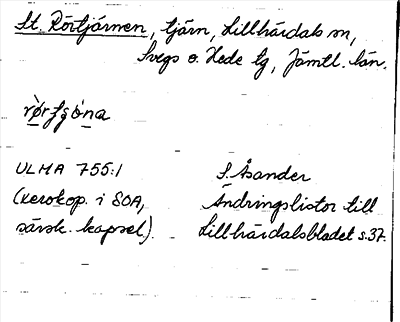 St. Rörtjärnen, tjärn, Lillhärdals sn,
Svegs o. Hede tg, Jämtl. län.
rö̀rfʂö́na
ULMA 755:1
(xerokop. i SOA,
särsk. kapsel).
S. Åsander
Ändringslistor till
Lillhärdalsbladet s. 37.